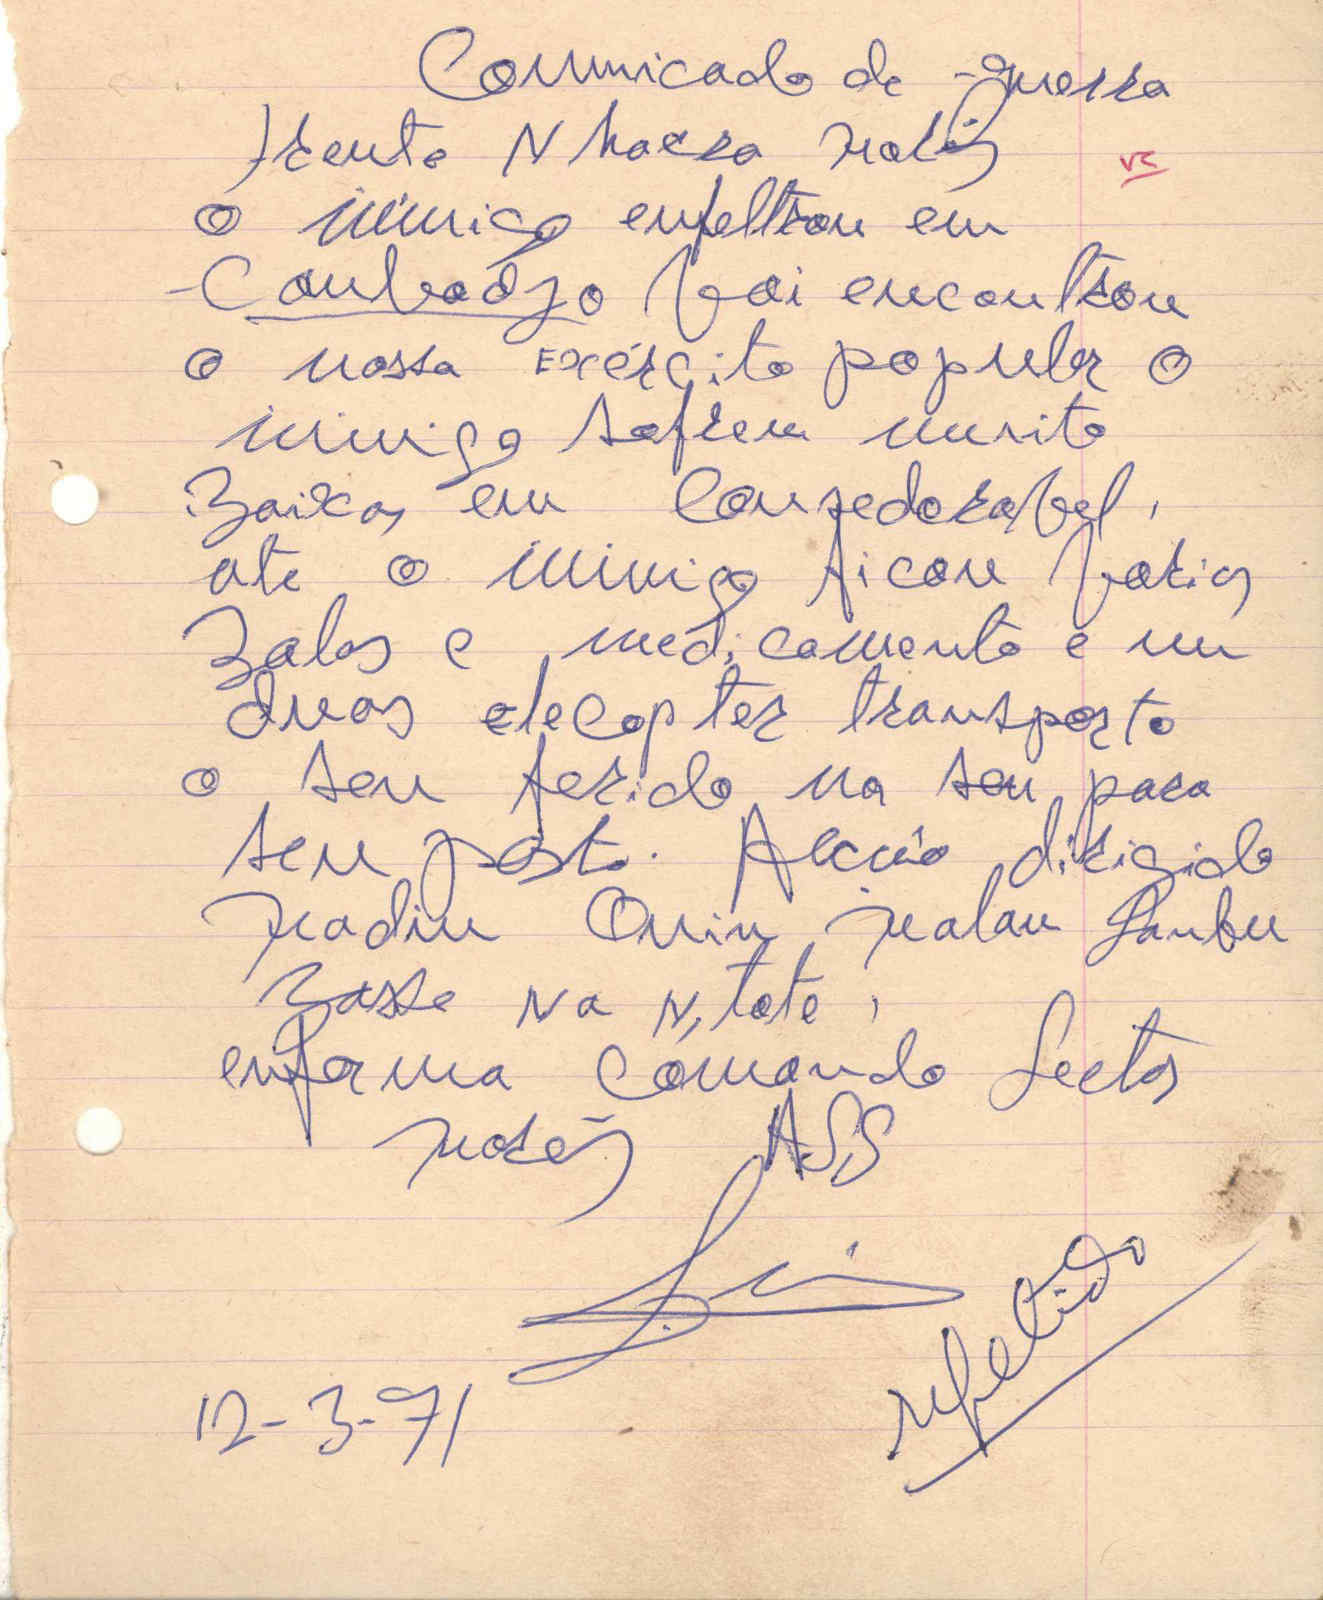 Comunicado de guerra
frente Nhacra Morés
vs
o inimigo enfeltrou em
Cambadjo Vai encontrou
o nossa Exército populer o
inimigo sofreu muito
Baixas em Consederabel,
ate o inimigo ficou Varios
Balas e medicamento e um
duas elecopter transporto
o seu ferido na seu para
seu posto. Accão dirigido
Madiu Ouin Malam Sambu
Basse na N,tote,
enforma Comando Sector
Morés ASS
repetido
12-3-71